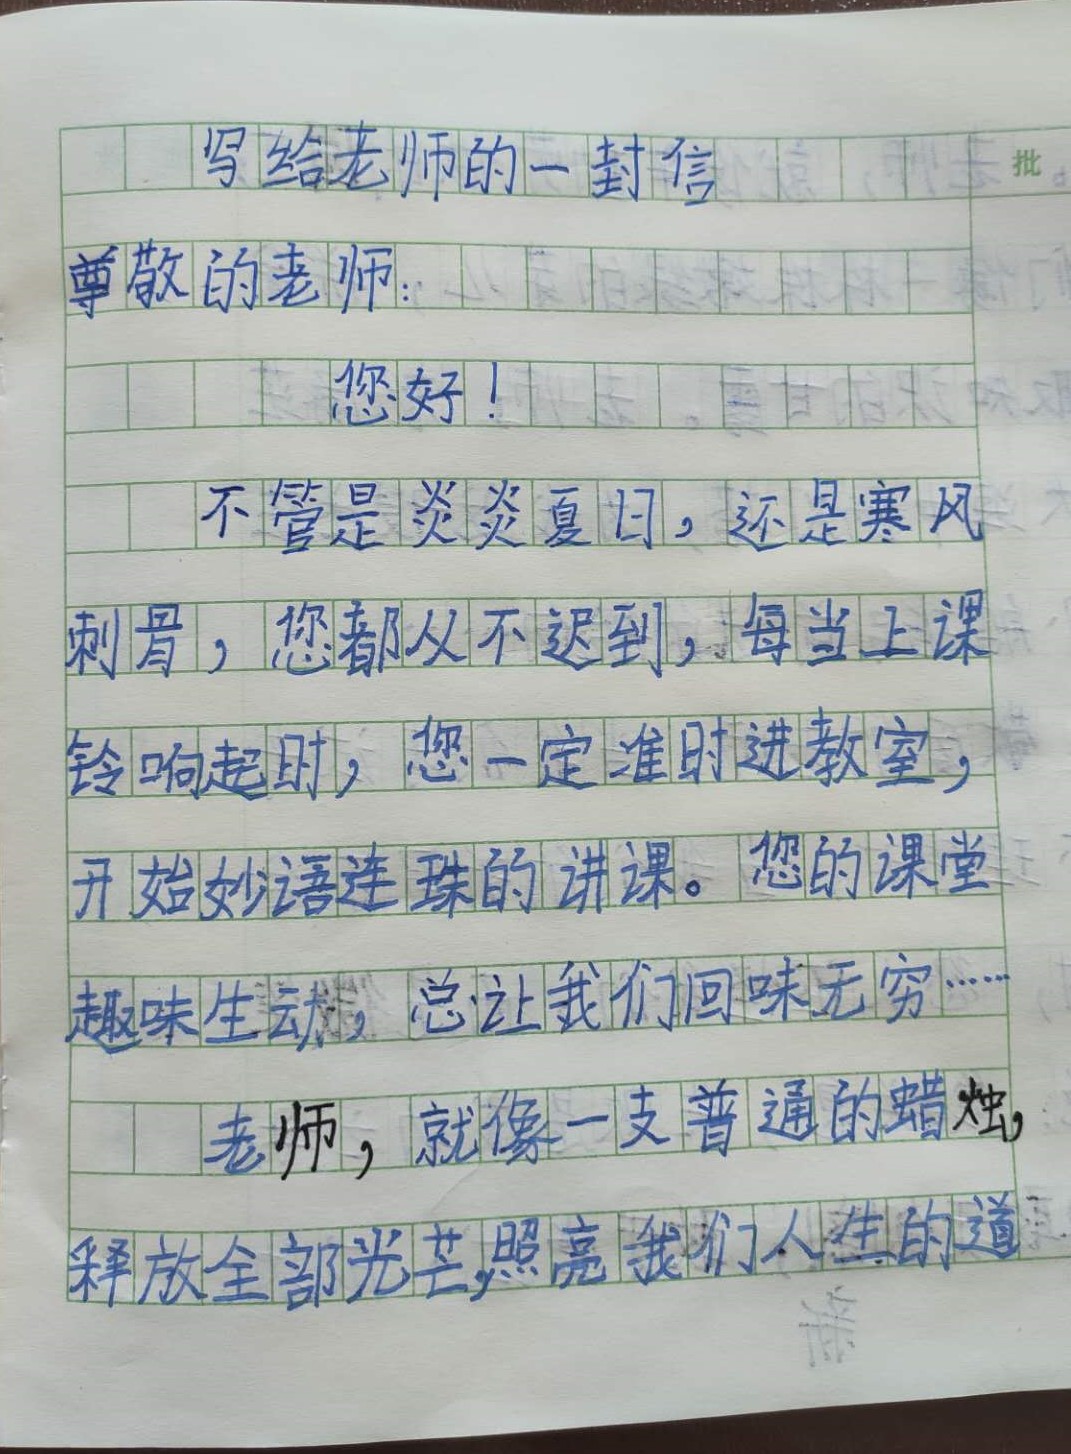 写给老师的一封信
批
尊敬的老师：
您好！
不管是炎炎夏日，还是寒风
刺骨，您都从不迟到，每当上课
铃响起时，您一定准时进教室，
开始妙语连珠的讲课。您的课堂
趣味生动，总让我们回味无穷……
老师，就像一支普通的蜡烛，
释放全部光芒，照亮我们人生的道